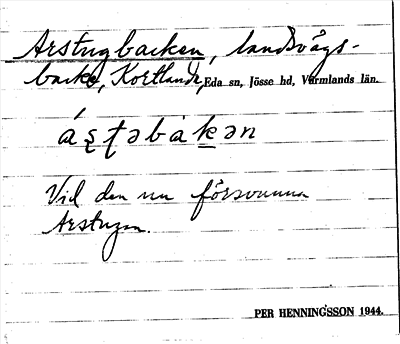 Arstugbacken, landsvägs-
backe, Kortlanda, Eda sn, Jösse hd, Värmlands län.
Vid den nu försvunna
Arstugan.
PER HENNINGSSON 1944.